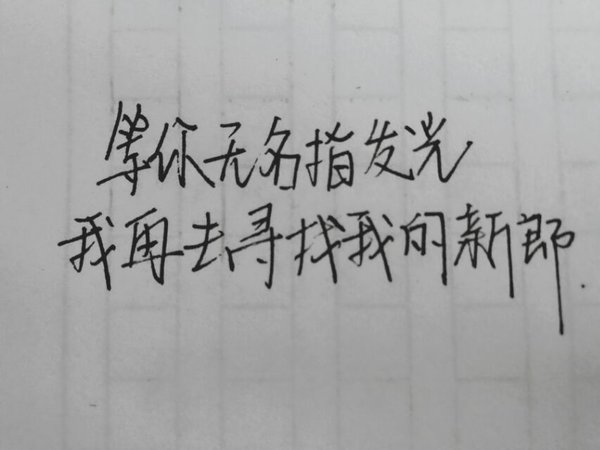 等你无名指发光
我再去寻找我的新郎.